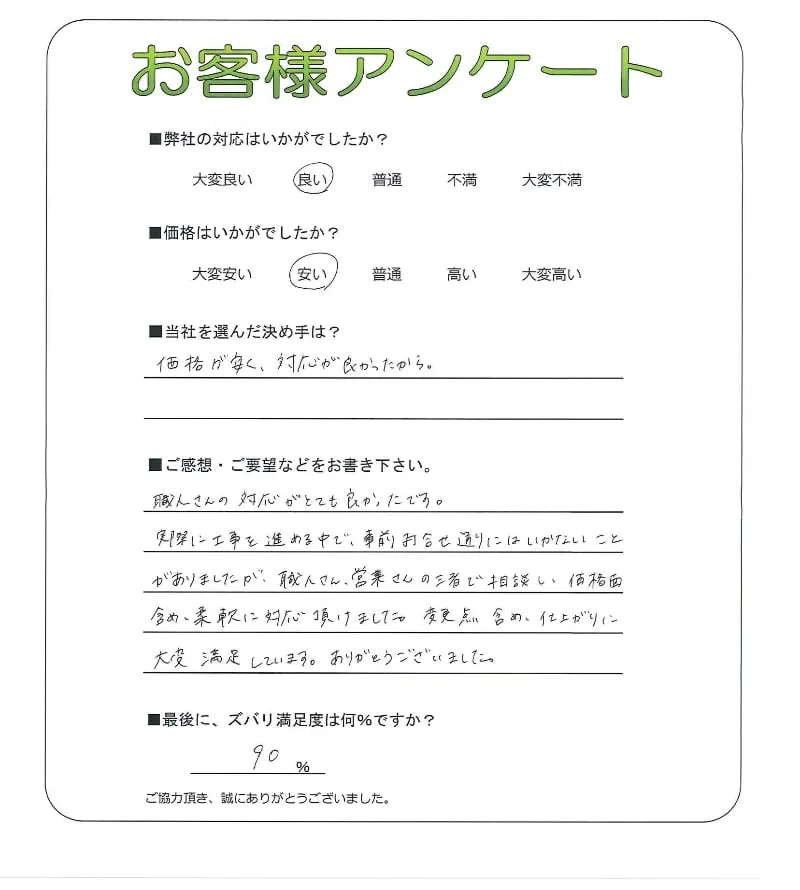 お客様アンケート
■弊社の対応はいかがでしたか?
大変良い 良い 普通 不満 大変不満
■価格はいかがでしたか?
大変安い 安い 普通 高い 大変高い
■当社を選んだ決め手は?
価格が安く、対応が良かったから。
■ご感想・ご要望などをお書き下さい。
職人さんの対応がとても良かったです。
実際に工事を進める中で、事前お合せ通りにはいかないこと
がありましたが、職人さん、営業さんの三者で相談し、価格面
含め、柔軟に対応頂けました。変更点含め、仕上がりに
大変満足しています。ありがとうございました。
■最後に、ズバリ満足度は何%ですか?
90 %
ご協力頂き、誠にありがとうございました。